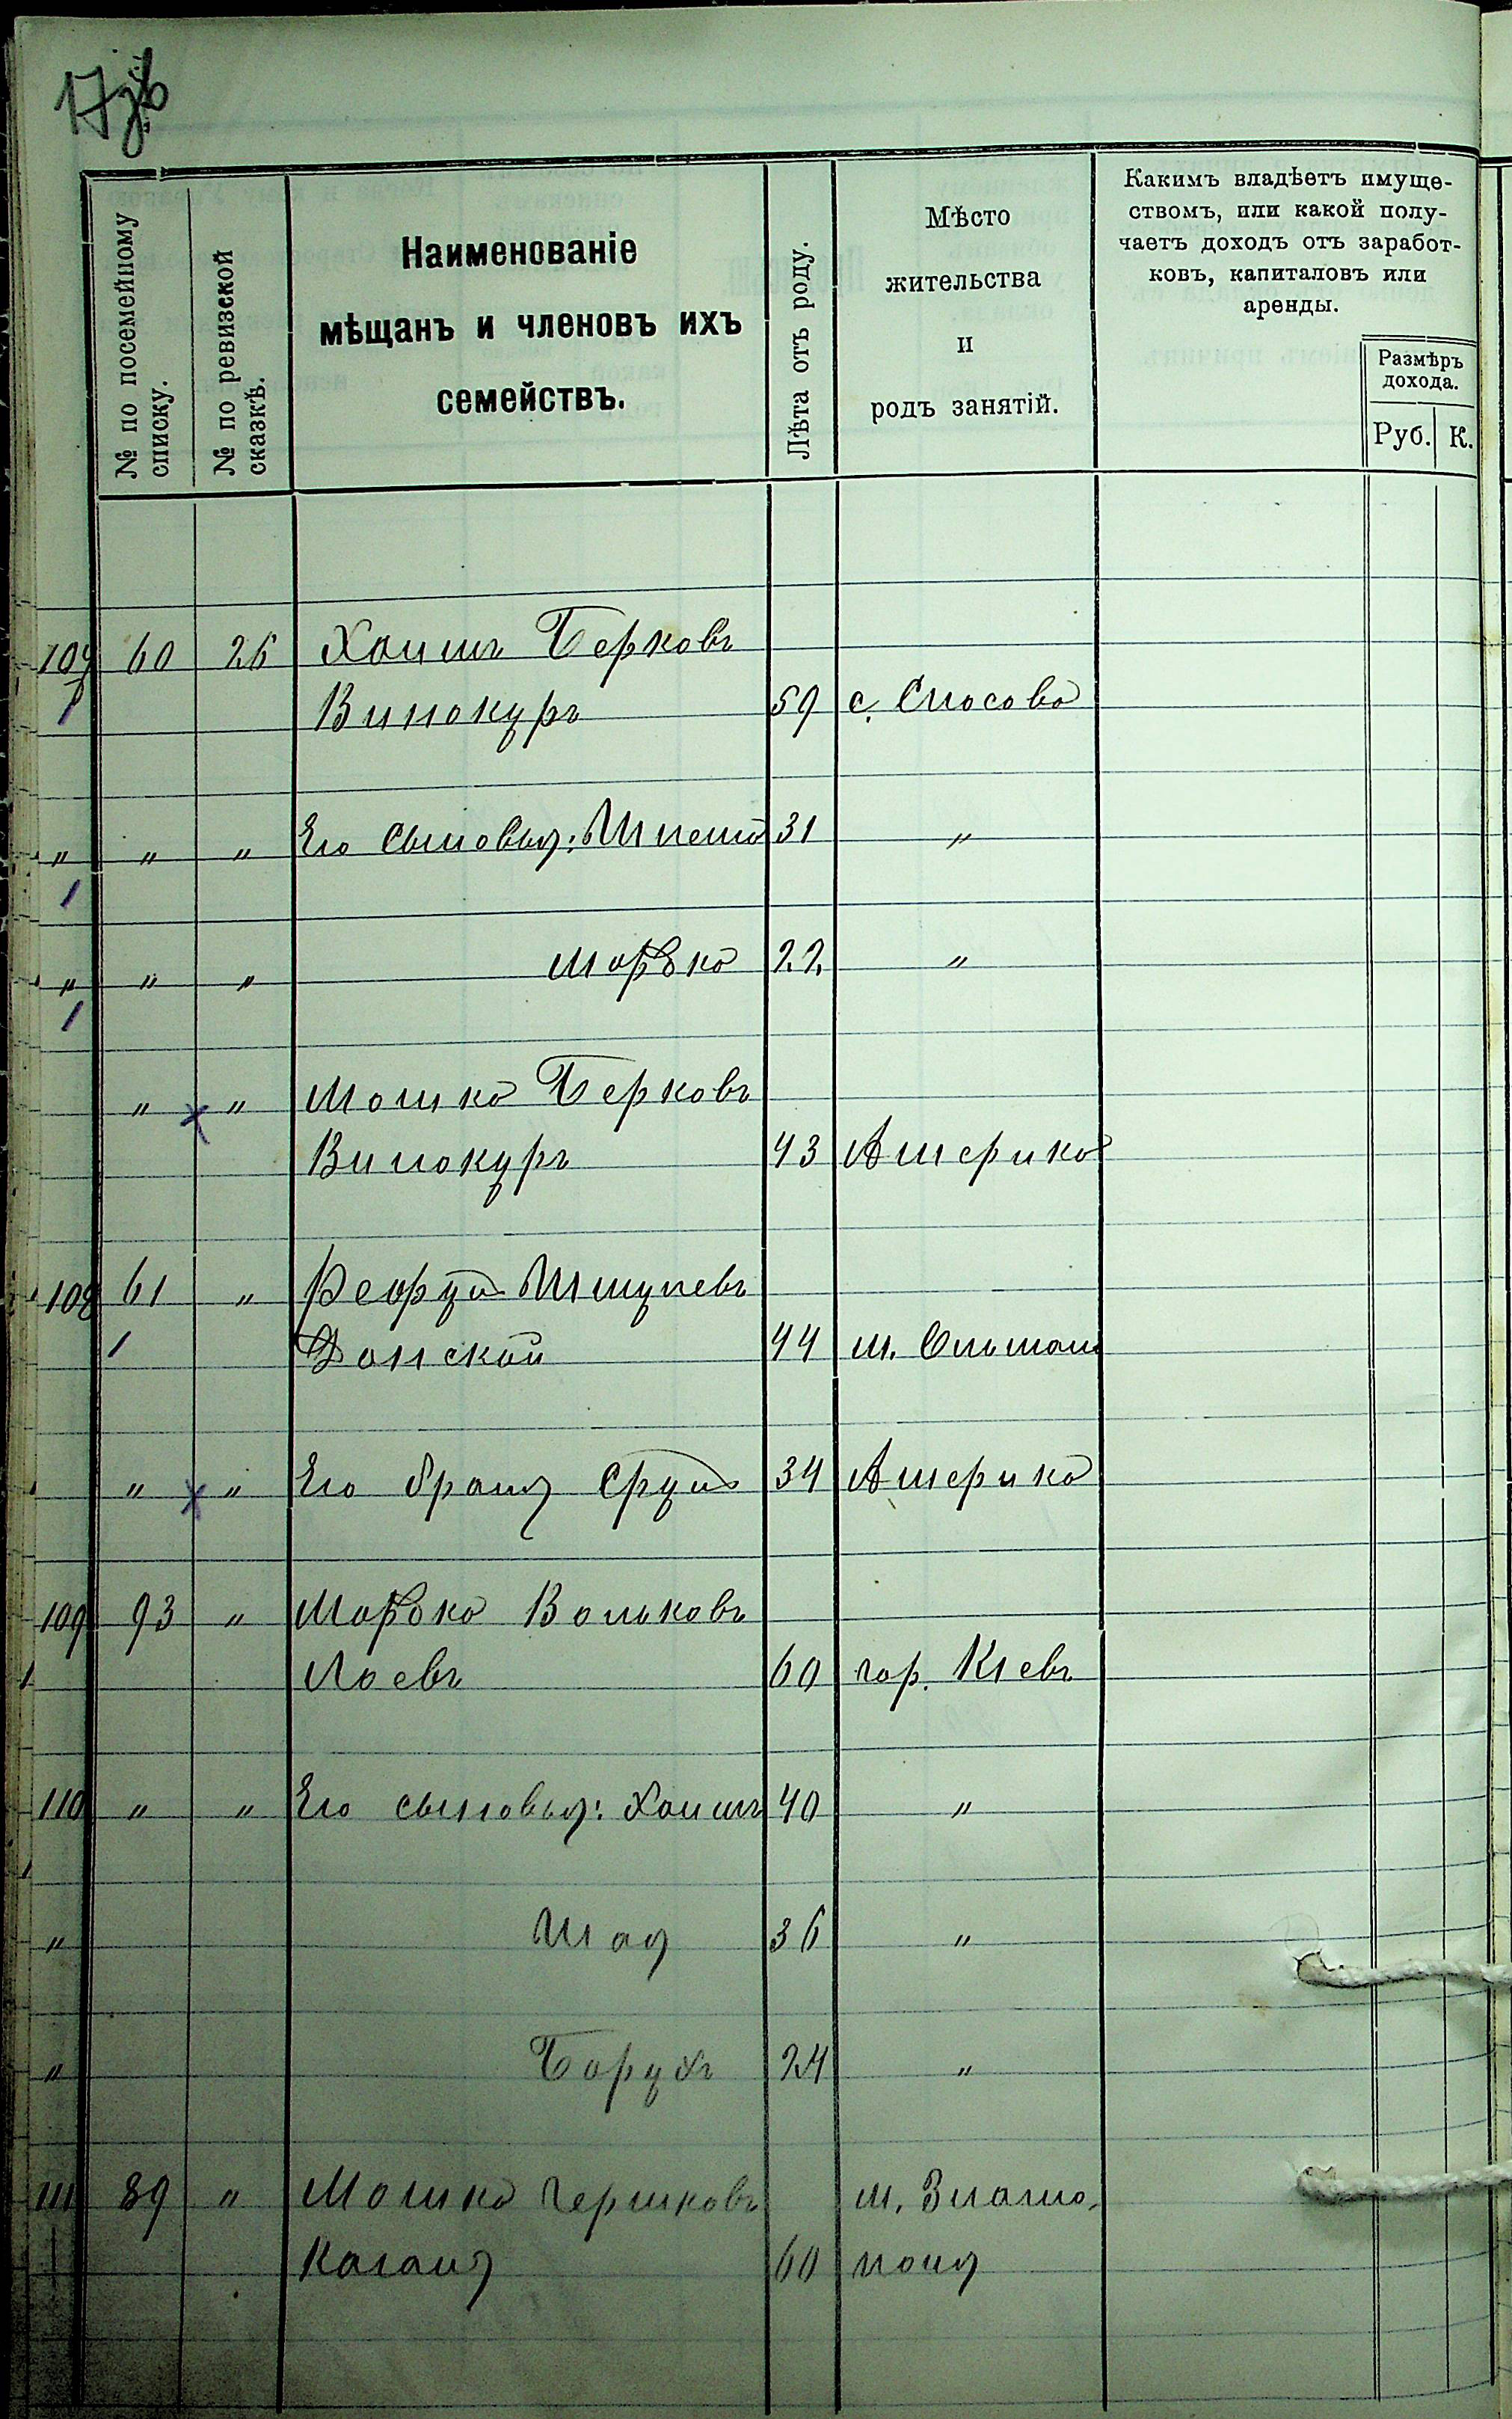 № по посемейному списку.
№ по ревизской сказкѣ.
Наименованіе
мѣщанъ и членовъ ихъ
семействъ.
Лѣта отъ роду.
Мѣсто
жительства
и
родъ занятій.
Какимъ владѣетъ имуще-
ствомъ, или какой полу-
чаетъ доходъ отъ заработ-
ковъ, капиталовъ или
аренды.
Размѣръ
дохода.
Руб. К.
60 26 Хаимъ Берковъ
1 Винокуръ 59 с.
" " " Его сыновья: 31 "
1
" " " Марко 22 "
1
" " Мошко Берковъ
Винокуръ 43 Америка
108 61 "
1 Донской 44 м.
" " Его братъ Сруль 34 Америка
109 93 " Марко Вольковъ
Лоевъ 60 гор. Кіевъ
110 " " Его сыновья: Хаимъ 40 "
" 36 "
" Борухъ 24 "
111 89 " Мошко Гершковъ м. Злато-
Каганъ 60 поль